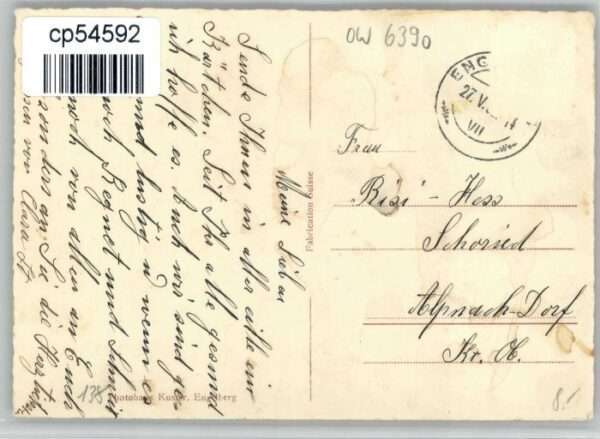 cp54592
OW 6390
ENG
27.V.
VII
Meine Lieben
Sende Ihnen in aller eile ein
Kärtchen. Seit Ihr alle gesund
ich hoffe es. Auch wir sind ge-
und lustig u wenn es
noch Regnet und Schneit
noch von allen an Euch
sonders an Sie die Herzlich
sen von Clara St
Fabrication Suisse
Frau
"Risi" - Hess
Schoried
Alpnach-Dorf
Kr. Ob.
138
Photohaus Kuster, Engelberg
8.-